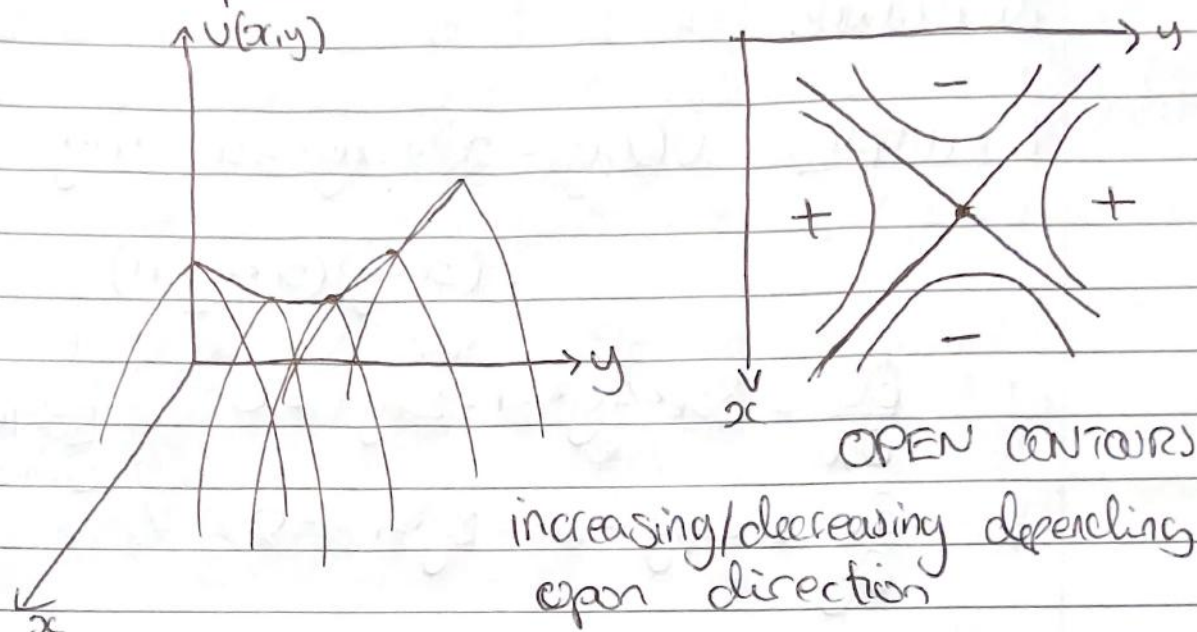 U(x,y)
y
x
y
x
−
+
+
−
OPEN CONTOURS
increasing/decreasing depending
upon direction